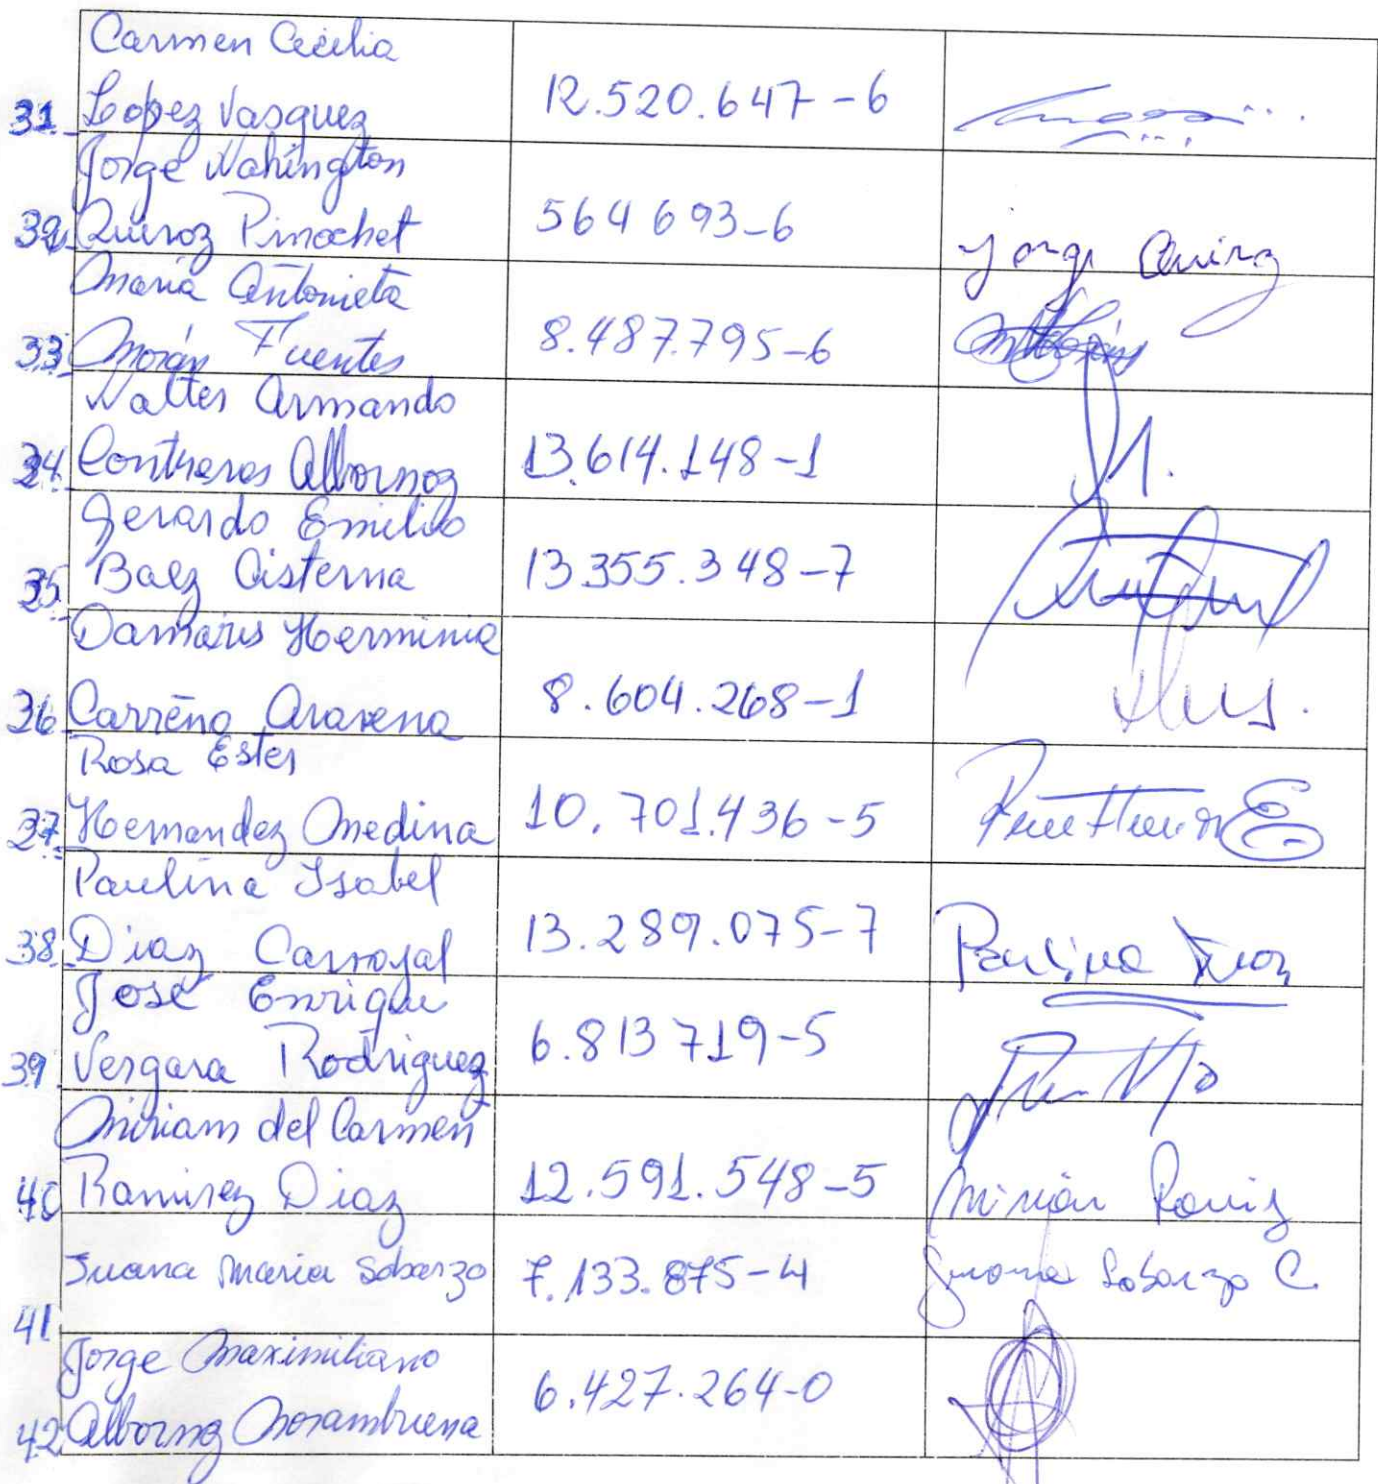 Carmen Cecilia
31. Lopez Vasquez 12.520.647-6
Jorge Wahington
32. Quiroz Pinochet 564693-6 Jorge Quiroz
Maria Antonieta
33. Morán Fuentes 8.487.795-6
Walter Armando
34. Contreras Albornoz 13.614.148-1
Gerardo Emilio
35. Baez Cisterna 13355.348-7
Damaris Herminia
36. Carreño Aravena 8.604.268-1
Rosa Ester
37. Hernandez Medina 10.701.436-5
Paulina Isabel
38. Diaz Carvajal 13.289.075-7 Paulina Diaz
José Enrique
39. Vergara Rodriguez 6.813719-5
Miriam del Carmen
40 Ramirez Diaz 12.591.548-5 Miriam
Juana Maria Sobarzo 7.133.875-4 Juana Sobarzo C.
41.
Jorge Maximiliano
42. Albornoz Norambuena 6.427.264-0